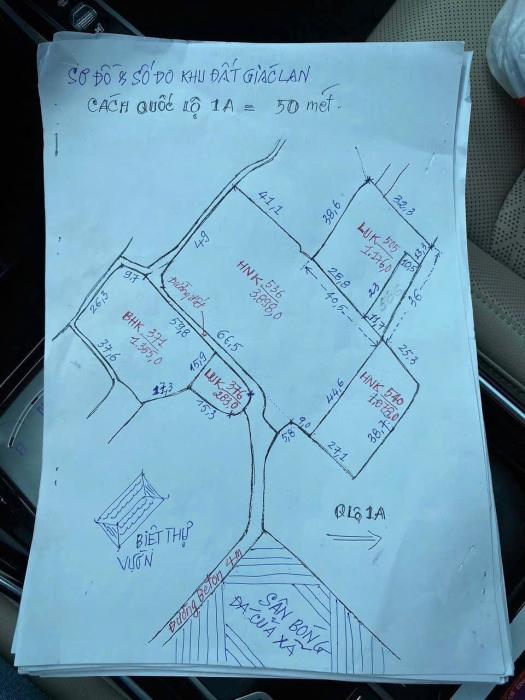 SƠ ĐỒ & SỐ ĐO KHU ĐẤT GIÁC LAN
CÁCH QUỐC LỘ 1A = 50 mét.
41,1
38,6
32,3
49
LUK 505
1.176,0
10,5
13,3
9,7
HNK 536
3.898,0
28,8
23
40,5
36
26,3
Đường đất
59,8
66,5
11,7
BHK 371
1.355,0
37,6
15,9
LUK 376
289,0
25,3
44,6
HNK 540
1.078,0
17,3
15,3
9,0
5,8
38,7
27,1
QLộ 1A
BIỆT THỰ
VƯỜN
Đường Beton 4m
SÂN BÓNG
ĐÁ CỦA XÃ